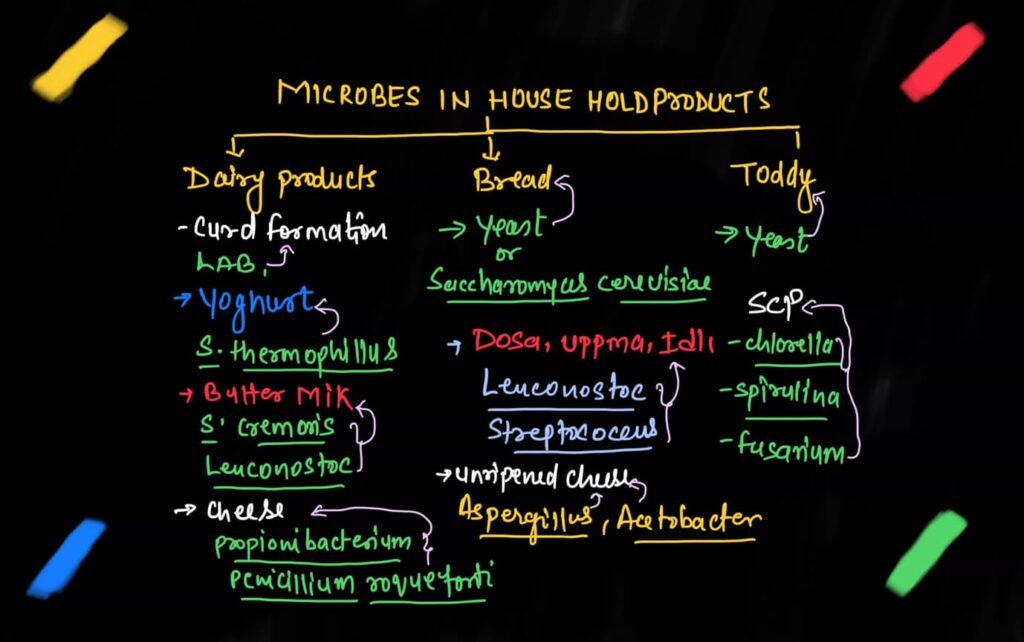 MICROBES IN HOUSE HOLDPRODUCTS
Dairy products
- Curd formation
LAB,
→ Yoghurt
S. thermophillus
→ Butter Mik
S. cremoris
Leuconostoc
→ cheese
propionibacterium
penicillium roqueforti
Bread
→ Yeast
or
Saccharomyces cerevisiae
→ Dosa, uppma, Idli
Leuconostoc
Streptococcus
→ unripened cheese
Aspergillus, Acetobacter
Toddy
→ Yeast
SCP
- chlorella
- spirulina
- fusarium